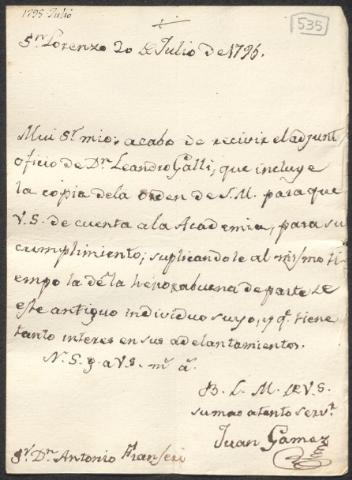 1795 Julio
535
Sn Lorenzo 20 de Julio de 1795.
Mui Sr mio: acabo de recivir el adjunto
oficio de Dn Leandro Galli, que incluye
la copia dela orden de S.M. para que
V.S. de cuenta a la Academia, para su
cumplimiento; suplicandole al mismo ti=
empo la dè la henorabuena de parte de
este antiguo individuo suyo, y qe tiene
tanto interes en sus adelantamientos.
N. S. g. a V.S. ms as.
B. L. M. de V.S.
su mas atento servr.
Juan Gamez
Sr Dn Antonio Franseri